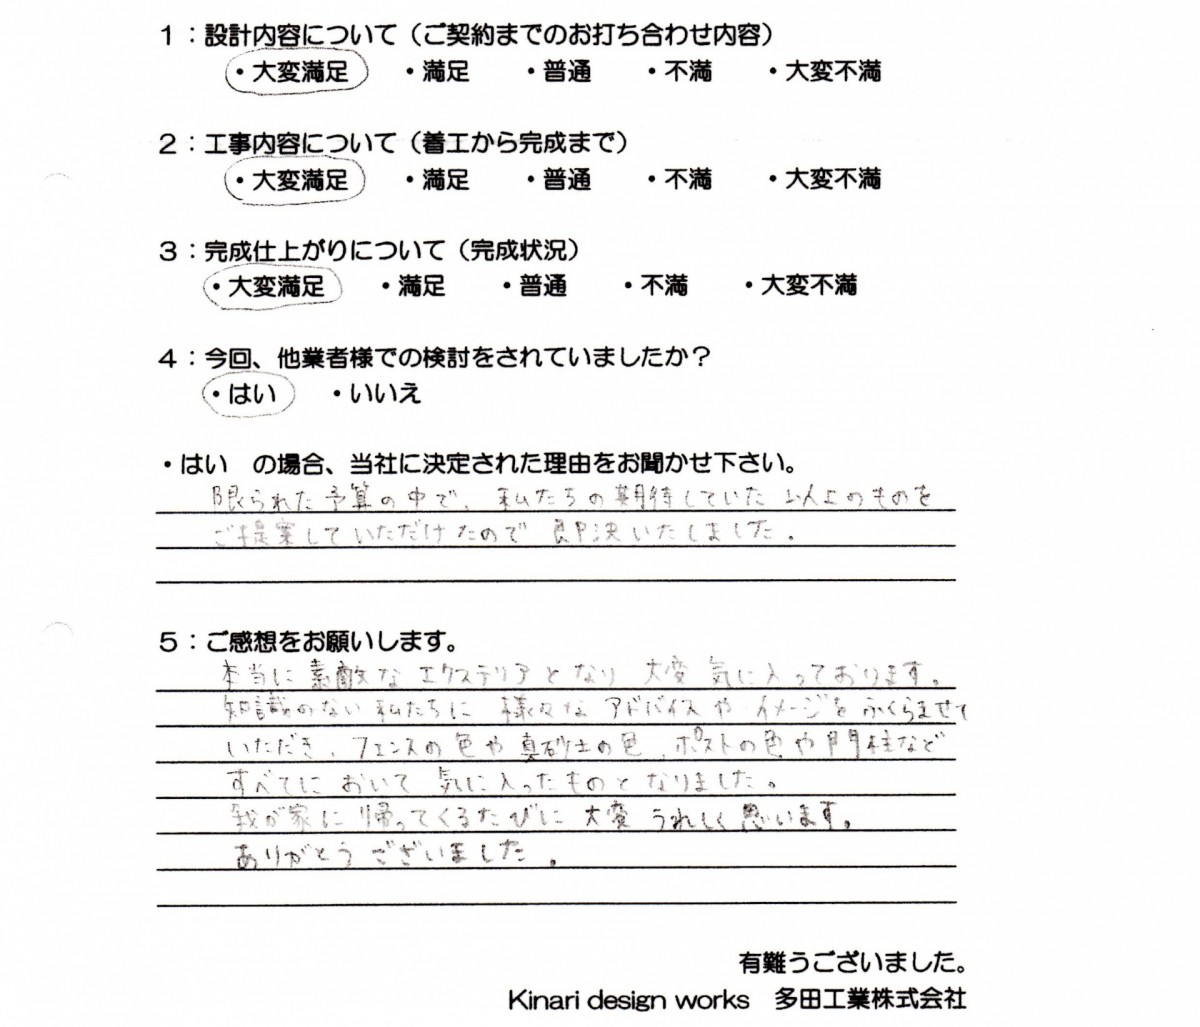 1：設計内容について（ご契約までのお打ち合わせ内容）
・大変満足 ・満足 ・普通 ・不満 ・大変不満
2：工事内容について（着工から完成まで）
・大変満足 ・満足 ・普通 ・不満 ・大変不満
3：完成仕上がりについて（完成状況）
・大変満足 ・満足 ・普通 ・不満 ・大変不満
4：今回、他業者様での検討をされていましたか？
・はい ・いいえ
・はい　の場合、当社に決定された理由をお聞かせ下さい。
限られた予算の中で、私たちの期待していた以上のものを
ご提案していただけたので即決いたしました。
5：ご感想をお願いします。
本当に素敵なエクステリアとなり大変気に入っております。
知識のない私たちに様々なアドバイスやイメージをふくらませて
いただき、フェンスの色や真砂土の色、ポストの色や門柱など
すべてにおいて気に入ったものとなりました。
我が家に帰ってくるたびに大変うれしく思います。
ありがとうございました。
有難うございました。
Kinari design works　多田工業株式会社